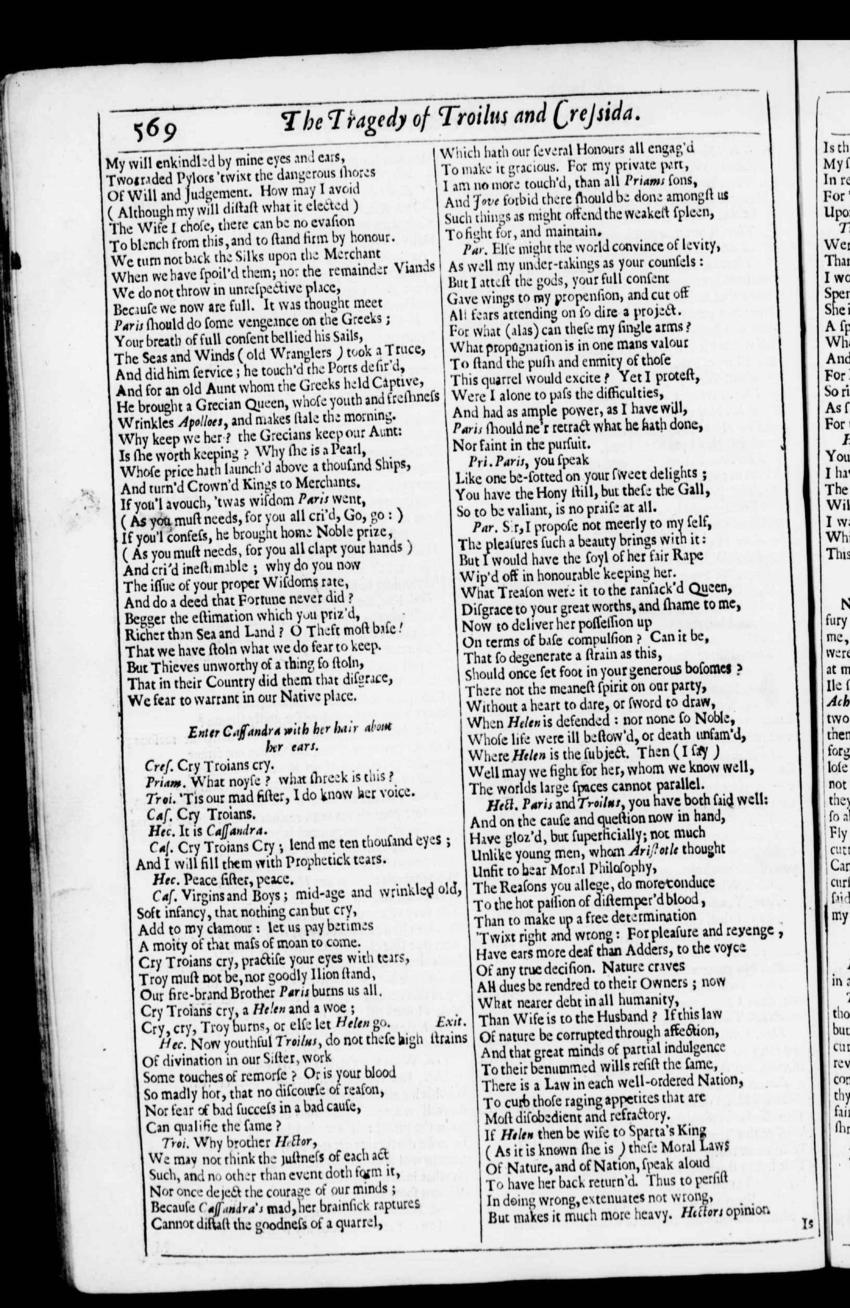 569
The Tragedy of Troilus and Creſsida.
My will enkindled by mine eyes and ears,
Two traded Pylots 'twixt the dangerous ſhores
Of Will and Judgement. How may I avoid
( Although my will diſtaſt what it elected )
The Wife I choſe, there can be no evaſion
To blench from this, and to ſtand firm by honour.
We turn not back the Silks upon the Merchant
When we have ſpoil'd them; nor the remainder Viands
We do not throw in unreſpective place,
Becauſe we now are full. It was thought meet
Paris ſhould do ſome vengeance on the Greeks ;
Your breath of full conſent bellied his Sails,
The Seas and Winds ( old Wranglers ) took a Truce,
And did him ſervice ; he touch'd the Ports deſir'd,
And for an old Aunt whom the Greeks held Captive,
He brought a Grecian Queen, whoſe youth and freſhneſs
Wrinkles Apolloes, and makes ſtale the morning.
Why keep we her ? the Grecians keep our Aunt:
Is ſhe worth keeping ? Why ſhe is a Pearl,
Whoſe price hath launch'd above a thouſand Ships,
And turn'd Crown'd Kings to Merchants.
If you'l avouch, 'twas wiſdom Paris went,
( As you muſt needs, for you all cri'd, Go, go : )
If you'l confeſs, he brought home Noble prize,
( As you muſt needs, for you all clapt your hands )
And cri'd ineſtimable ; why do you now
The iſſue of your proper Wiſdoms rate,
And do a deed that Fortune never did ?
Begger the eſtimation which you priz'd,
Richer than Sea and Land ? O Theft moſt baſe !
That we have ſtoln what we do fear to keep.
But Thieves unworthy of a thing ſo ſtoln,
That in their Country did them that diſgrace,
We fear to warrant in our Native place.
Enter Caſſandra with her hair about
her ears.
Creſ. Cry Troians cry.
Priam. What noyſe ? what ſhreek is this ?
Troi. 'Tis our mad ſiſter, I do know her voice.
Caſ. Cry Troians.
Hec. It is Caſſandra.
Caſ. Cry Troians Cry ; lend me ten thouſand eyes ;
And I will fill them with Prophetick tears.
Hec. Peace ſiſter, peace.
Caſ. Virgins and Boys ; mid-age and wrinkled old,
Soft infancy, that nothing can but cry,
Add to my clamour : let us pay betimes
A moity of that maſs of moan to come.
Cry Troians cry, practiſe your eyes with tears,
Troy muſt not be, nor goodly Ilion ſtand,
Our fire-brand Brother Paris burns us all.
Cry Troians cry, a Helen and a woe ;
Cry, cry, Troy burns, or elſe let Helen go. Exit.
Hec. Now youthful Troilus, do not theſe high ſtrains
Of divination in our Siſter, work
Some touches of remorſe ? Or is your blood
So madly hot, that no diſcourſe of reaſon,
Nor fear of bad ſucceſs in a bad cauſe,
Can qualifie the ſame ?
Troi. Why brother Hector,
We may not think the juſtneſs of each act
Such, and no other than event doth form it,
Nor once deject the courage of our minds ;
Becauſe Caſſandra's mad, her brainſick raptures
Cannot diſtaſt the goodneſs of a quarrel,
Which hath our ſeveral Honours all engag'd
To make it gracious. For my private part,
I am no more touch'd, than all Priams ſons,
And Jove forbid there ſhould be done amongſt us
Such things as might offend the weakeſt ſpleen,
To fight for, and maintain.
Par. Elſe might the world convince of levity,
As well my under-takings as your counſels :
But I atteſt the gods, your full conſent
Gave wings to my propenſion, and cut off
All fears attending on ſo dire a project.
For what (alas) can theſe my ſingle arms ?
What propugnation is in one mans valour
To ſtand the puſh and enmity of thoſe
This quarrel would excite ? Yet I proteſt,
Were I alone to paſs the difficulties,
And had as ample power, as I have will,
Paris ſhould ne'r retract what he hath done,
Nor faint in the purſuit.
Pri. Paris, you ſpeak
Like one be-ſotted on your ſweet delights ;
You have the Hony ſtill, but theſe the Gall,
So to be valiant, is no praiſe at all.
Par. Sir, I propoſe not meerly to my ſelf,
The pleaſures ſuch a beauty brings with it :
But I would have the ſoyl of her fair Rape
Wip'd off in honourable keeping her.
What Treaſon were it to the ranſack'd Queen,
Diſgrace to your great worths, and ſhame to me,
Now to deliver her poſſeſſion up
On terms of baſe compulſion ? Can it be,
That ſo degenerate a ſtrain as this,
Should once ſet foot in your generous boſomes ?
There not the meaneſt ſpirit on our party,
Without a heart to dare, or ſword to draw,
When Helen is defended : nor none ſo Noble,
Whoſe life were ill beſtow'd, or death unfam'd,
Where Helen is the ſubject. Then ( I ſay )
Well may we fight for her, whom we know well,
The worlds large ſpaces cannot parallel.
Hect. Paris and Troilus, you have both ſaid well:
And on the cauſe and queſtion now in hand,
Have gloz'd, but ſuperficially; not much
Unlike young men, whom Ariſtotle thought
Unfit to hear Moral Philoſophy,
The Reaſons you allege, do more conduce
To the hot paſſion of diſtemper'd blood,
Than to make up a free determination
'Twixt right and wrong : For pleaſure and revenge ,
Have ears more deaf than Adders, to the voyce
Of any true deciſion. Nature craves
All dues be rendred to their Owners ; now
What nearer debt in all humanity,
Than Wife is to the Husband ? If this law
Of nature be corrupted through affection,
And that great minds of partial indulgence
To their benummed wills reſiſt the ſame,
There is a Law in each well-ordered Nation,
To curb thoſe raging appetites that are
Moſt diſobedient and refractory.
If Helen then be wife to Sparta's King
( As it is known ſhe is ) theſe Moral Laws
Of Nature, and of Nation, ſpeak aloud
To have her back return'd. Thus to perſiſt
In doing wrong, extenuates not wrong,
But makes it much more heavy. Hectors opinion
Is